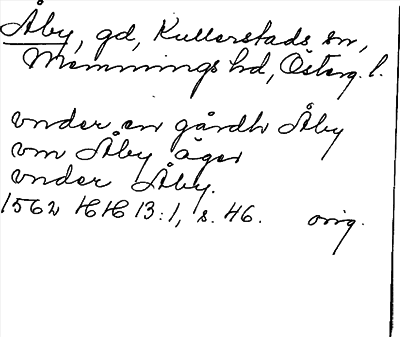 Åby, gd, Kullerstads sn,
Memmings hd, Österg. l.
vnder en gårdh Åby
vm Åby äger
vnder Åby.
1562 HH 13:1, s. 46. orig.